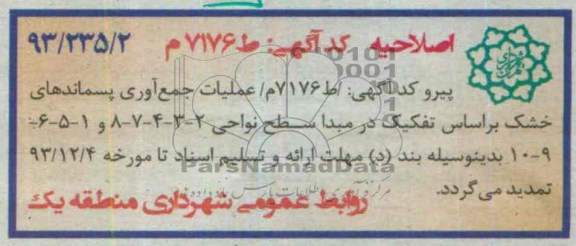 اصلاحیه کد آگهی: ط۷۱۷۶م ۹۳/۲۳۵/۲
پیرو کد آگهی: /ط۷۱۷۶م/ عملیات جمع‌آوری پسماندهای
خشک براساس تفکیک در مبدا سطح نواحی ۲-۳-۴-۷-۸ و ۱-۵-۶-
۹-۱۰ بدینوسیله بند (د) مهلت ارائه و تسلیم اسناد تا مورخه ۹۳/۱۲/۴
ParsNamadData
تمدید می گردد.
روابط عمومی شهرداری منطقه یک